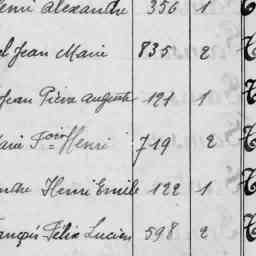 Henri Alexandre 356 1
el Jean Marie 835 2
Jean Pierre Auguste 121 1
Marie F^oir= Henri 719 2
andre Henri Emile 122 1
François Félix Lucien 598 2